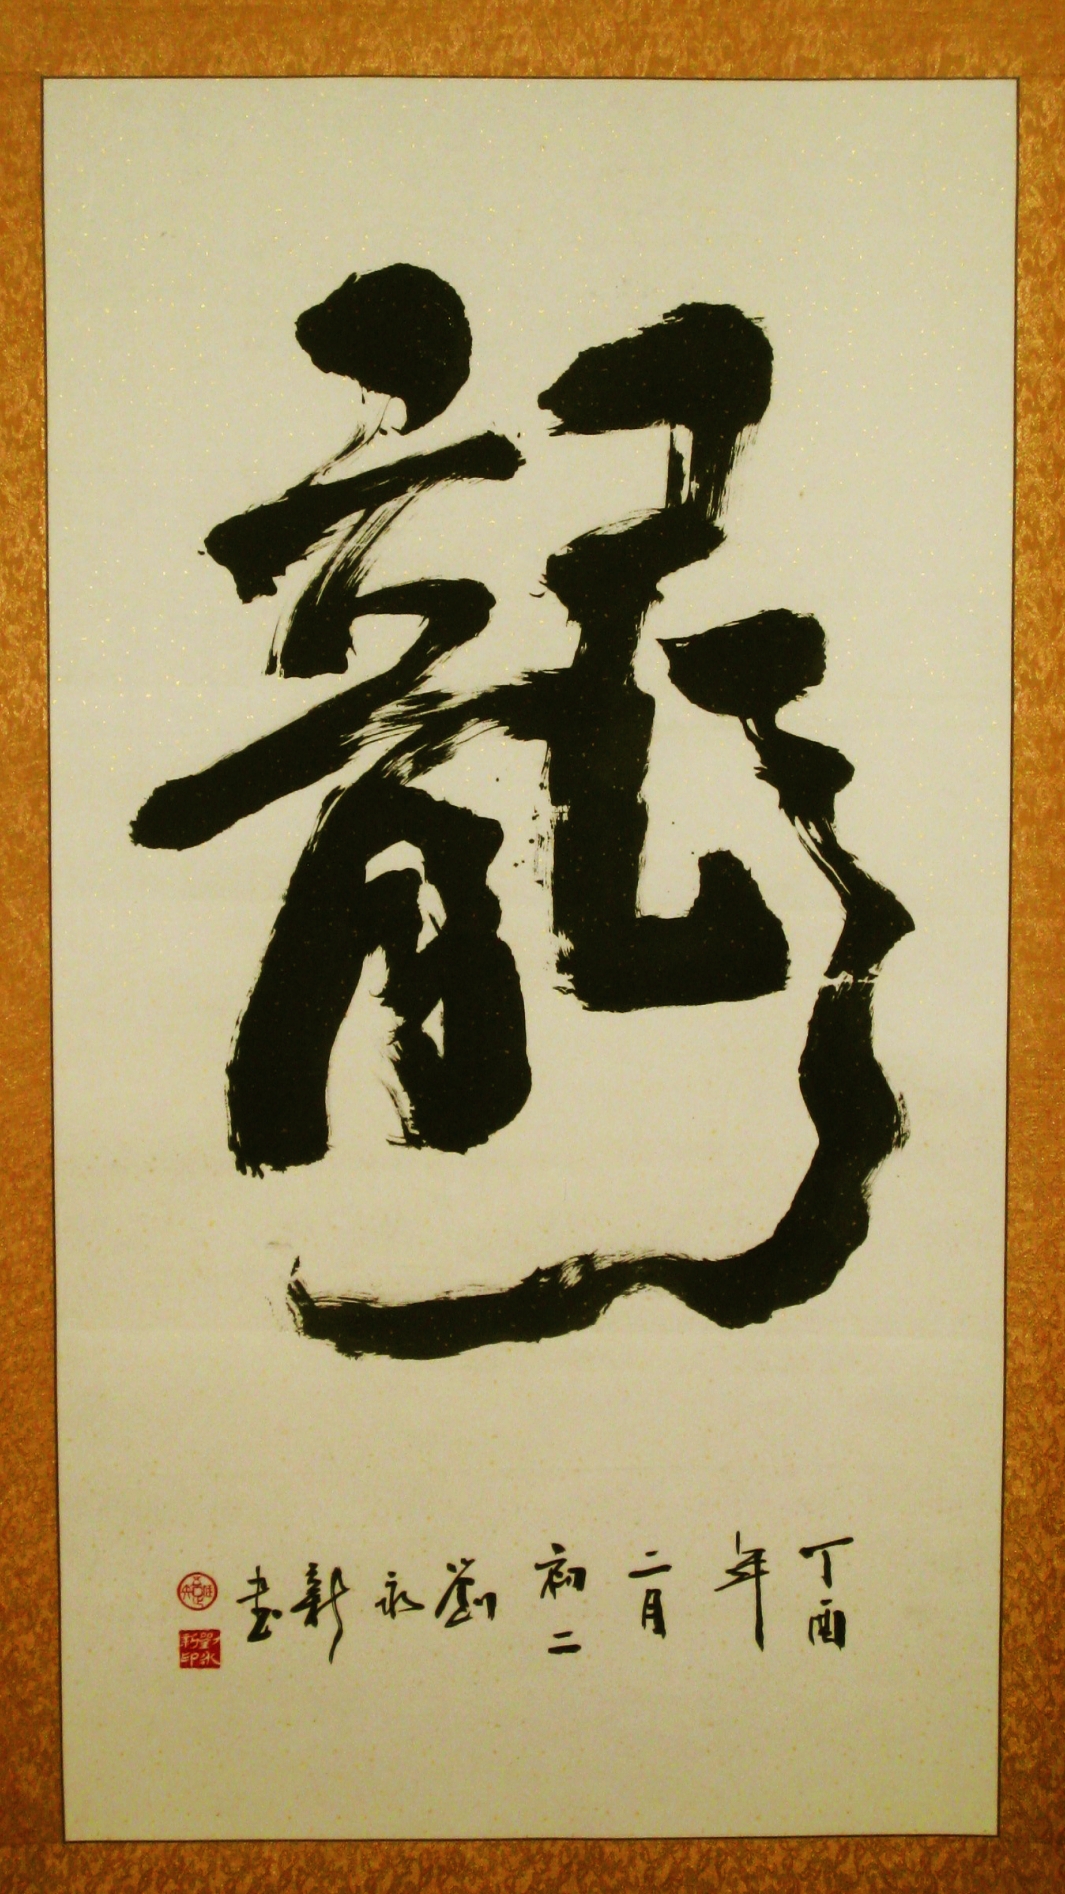 龍
丁酉年二月初二劉永新書
劉永新印